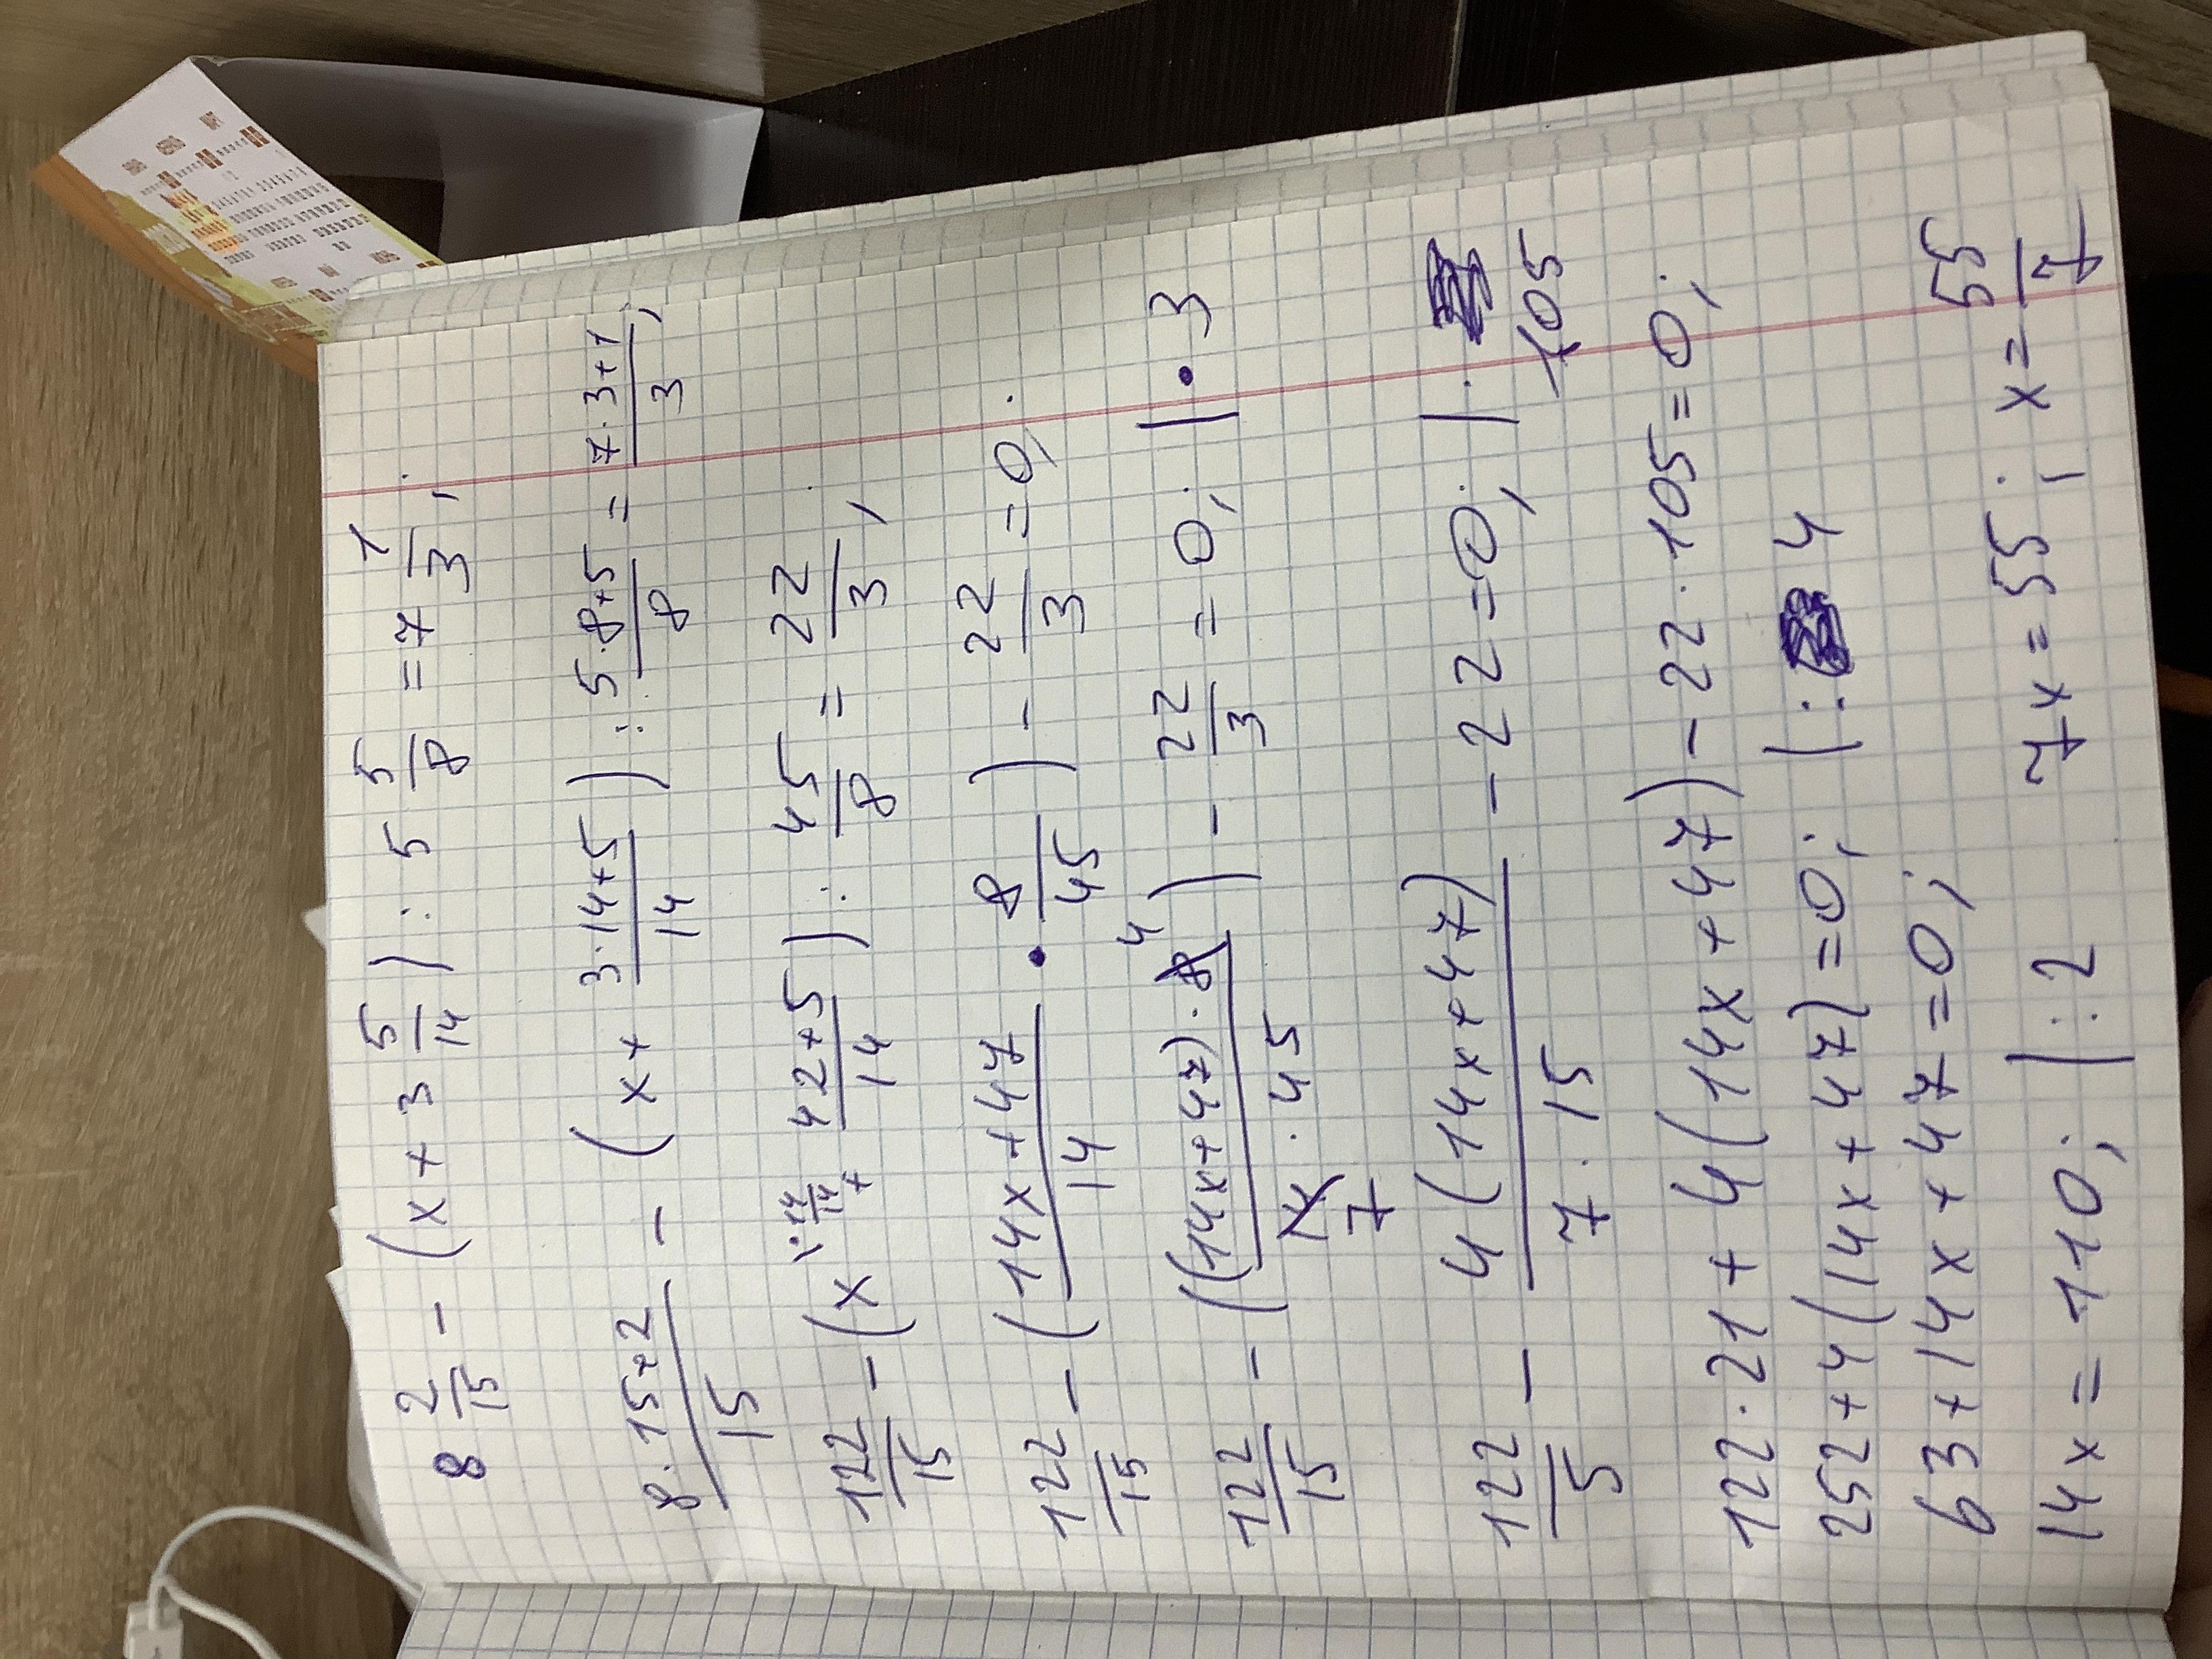 8 2/15 - (x + 3 5/14) : 5 5/8 = 7 1/3;
8·15+2/15 - (x + 3·14+5/14) : 5·8+5/8 = 7·3+1/3;
122/15 - (x 1·14/14 + 42+5/14) : 45/8 = 22/3;
122/15 - (14x+47/14 • 8/45) - 22/3 = 0;
122/15 - ((14x+47)·8/14·45) - 22/3 = 0; | • 3
4
7
122/5 - 4(14x+47)/7·15 - 22 = 0; | · 105
122·21 + 4(14x+47) - 22·105 = 0;
252 + 4(14x+47) = 0; | : 4
63 + 14x + 47 = 0;
14x = 110; | : 2 7x = 55; x = 55/7